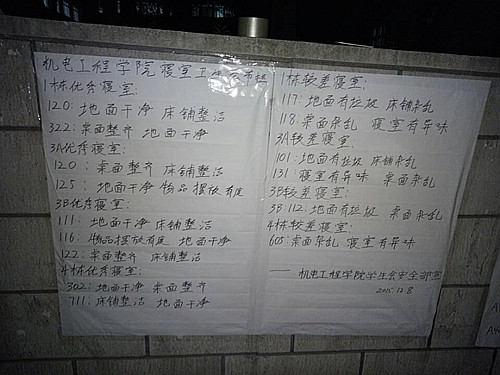 机电工程学院寝室卫生公布栏
1栋优秀寝室:
120: 地面干净 床铺整洁
322: 桌面整齐 地面干净
3A优秀寝室:
120: 桌面整齐 床铺整洁
125: 地面干净 物品摆放有序
3B优秀寝室:
111: 地面干净 床铺整洁
116: 物品摆放有序 地面干净
122: 桌面整齐 床铺整洁
4栋优秀寝室:
302: 地面干净 桌面整齐
711: 床铺整洁 地面干净
1栋较差寝室:
117: 地面有垃圾 床铺杂乱
118: 桌面杂乱 寝室有异味
3A较差寝室:
101: 地面有垃圾 床铺杂乱
131 寝室有异味 桌面杂乱
3B较差寝室:
3B112: 地面有垃圾 桌面杂乱
4栋较差寝室:
605: 桌面杂乱 寝室有异味
—— 机电工程学院学生会安全部宣
2015.12.8